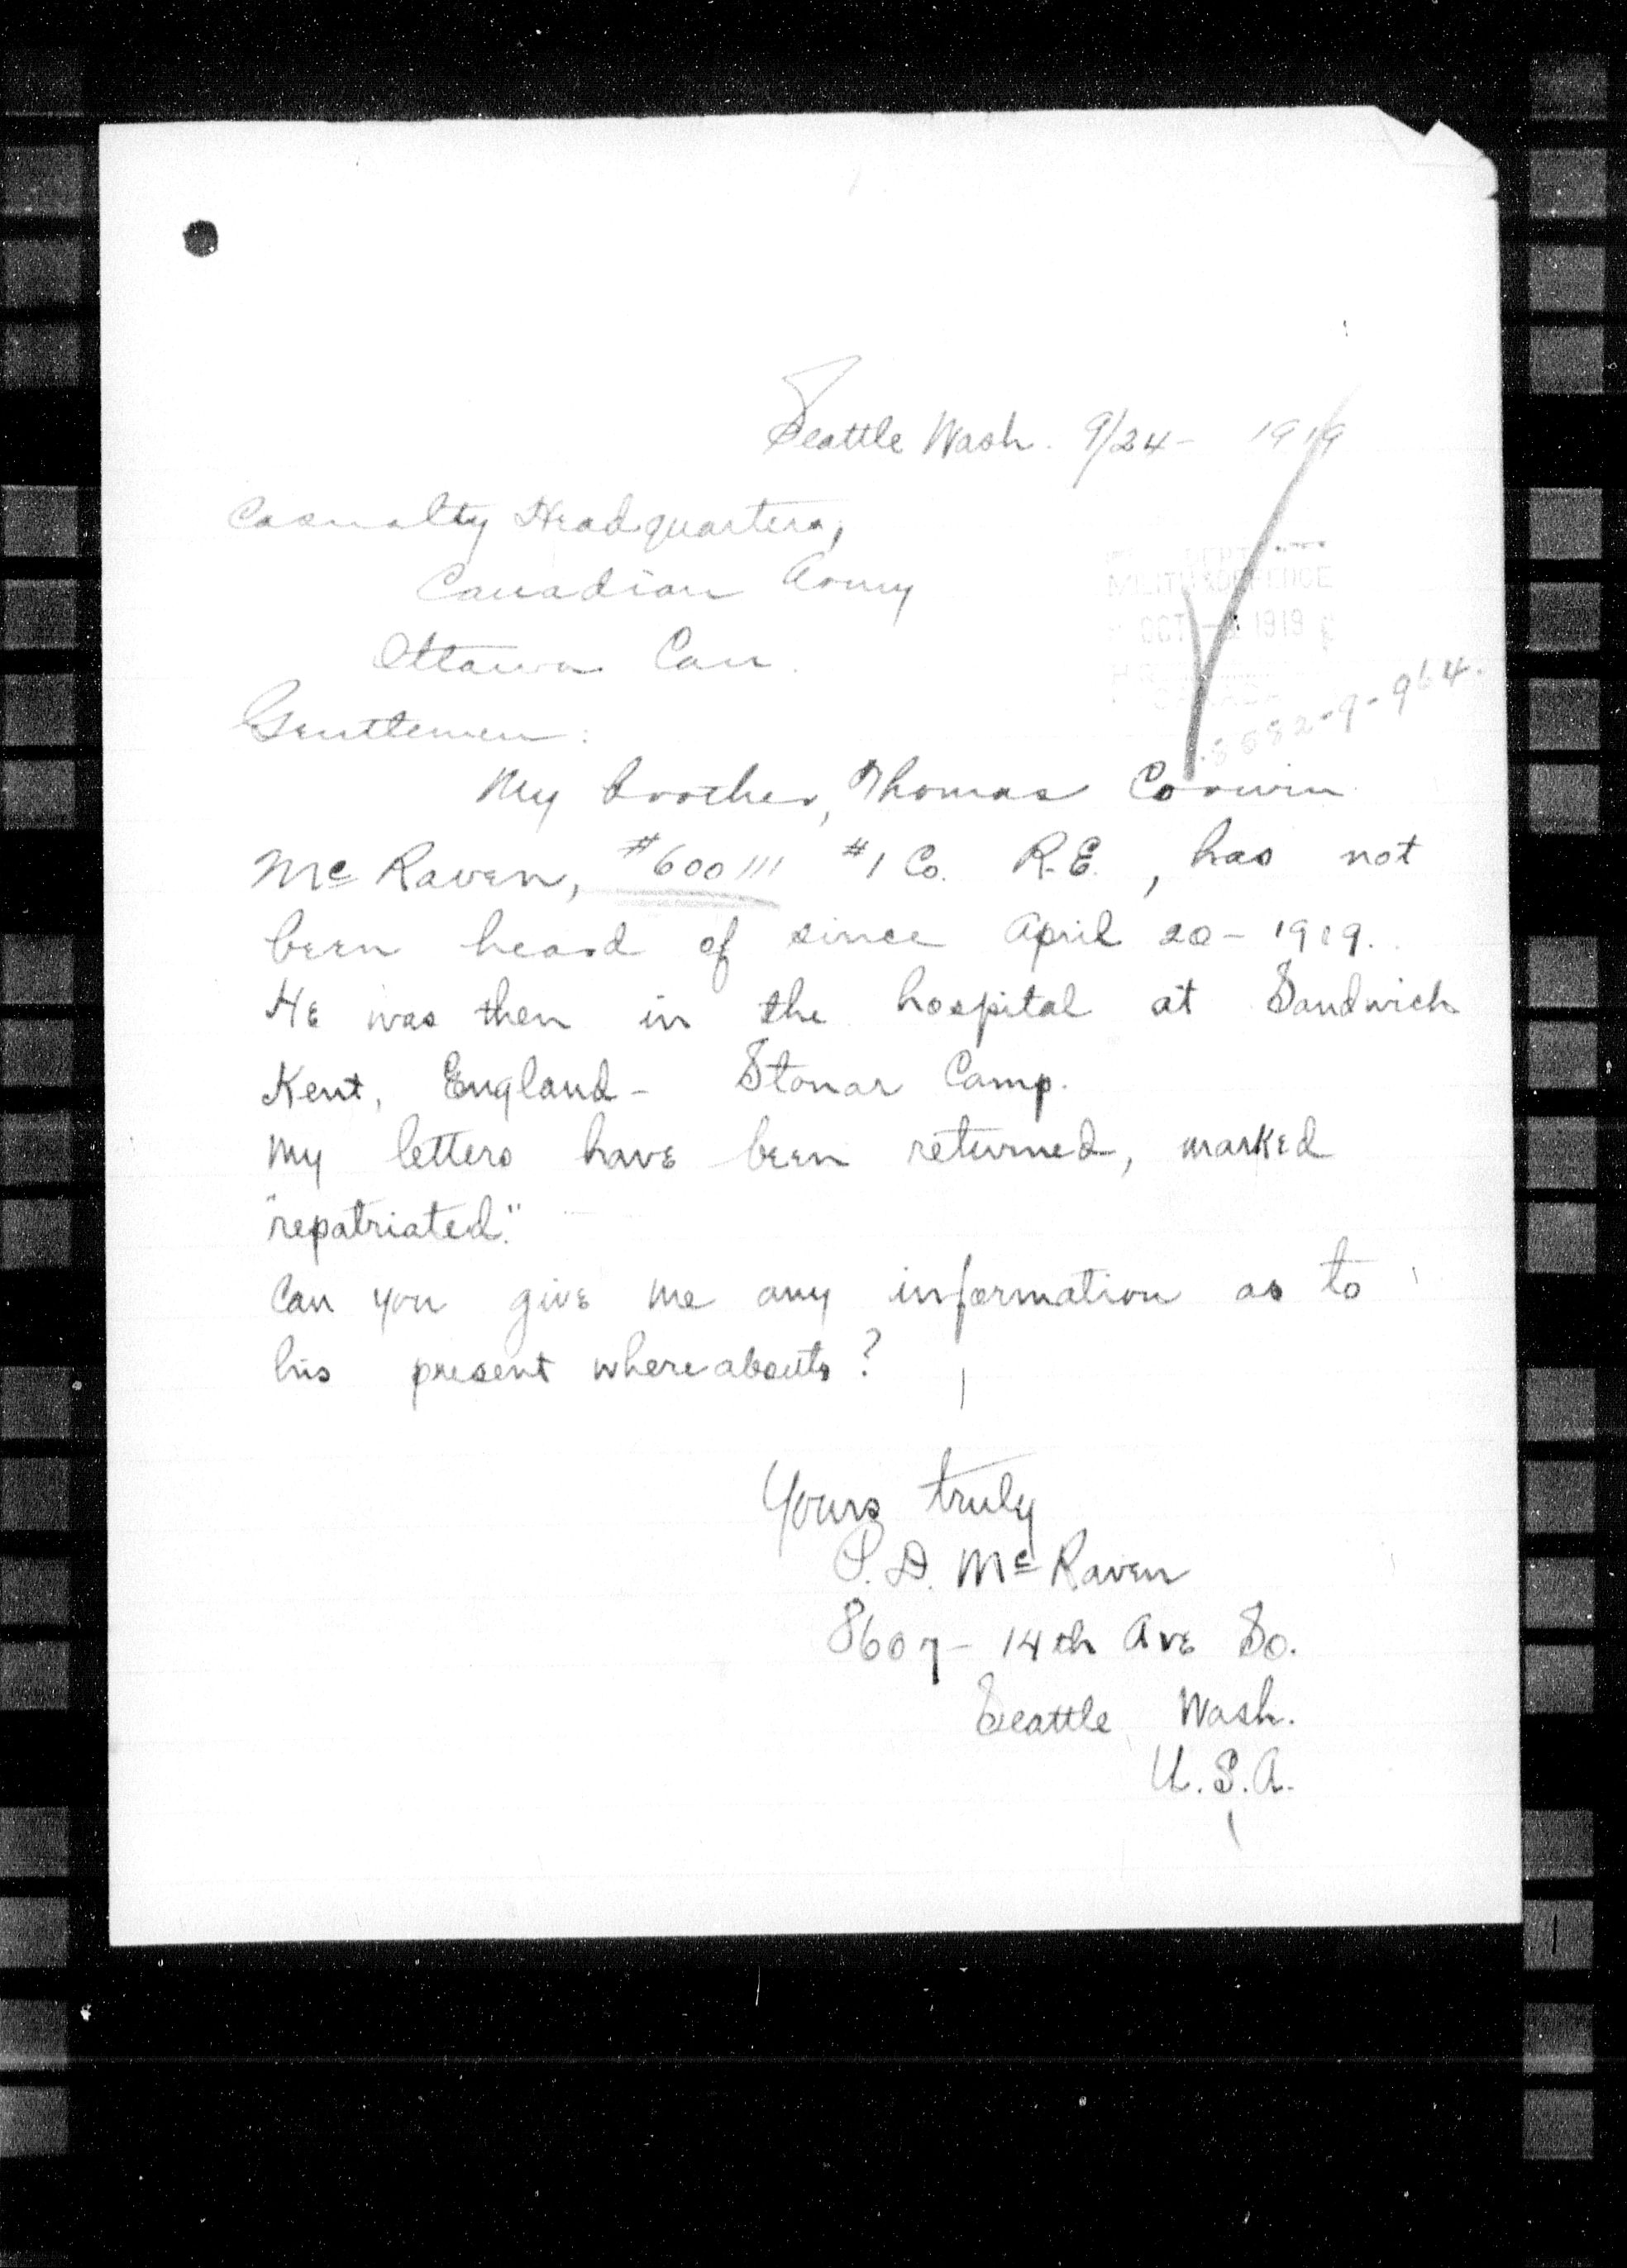 Seattle Wash. 9/24- 1919
Casualty Headquarters,
Canadian Army
Ottawa Can.
DEPT
MILITIA & DEFENCE
OCT 1919
Gentlemen:
-9-964.
My brother, Thomas Corwin
Mc Raven, #600111 #1 Co. R.E., has not
been heard of since April 20-1919.
He was then in the hospital at Sandwich
Kent, England- Stonar Camp.
My letters have been returned, marked
"repatriated."
Can you give me any information as to
his present whereabouts?
Yours truly
D. Mc Raven
8607- 14th Ave So.
Seattle, Wash.
U.S.A.